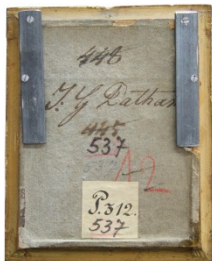 446
J. G Dathan
445.
537
A2
P.312.
537